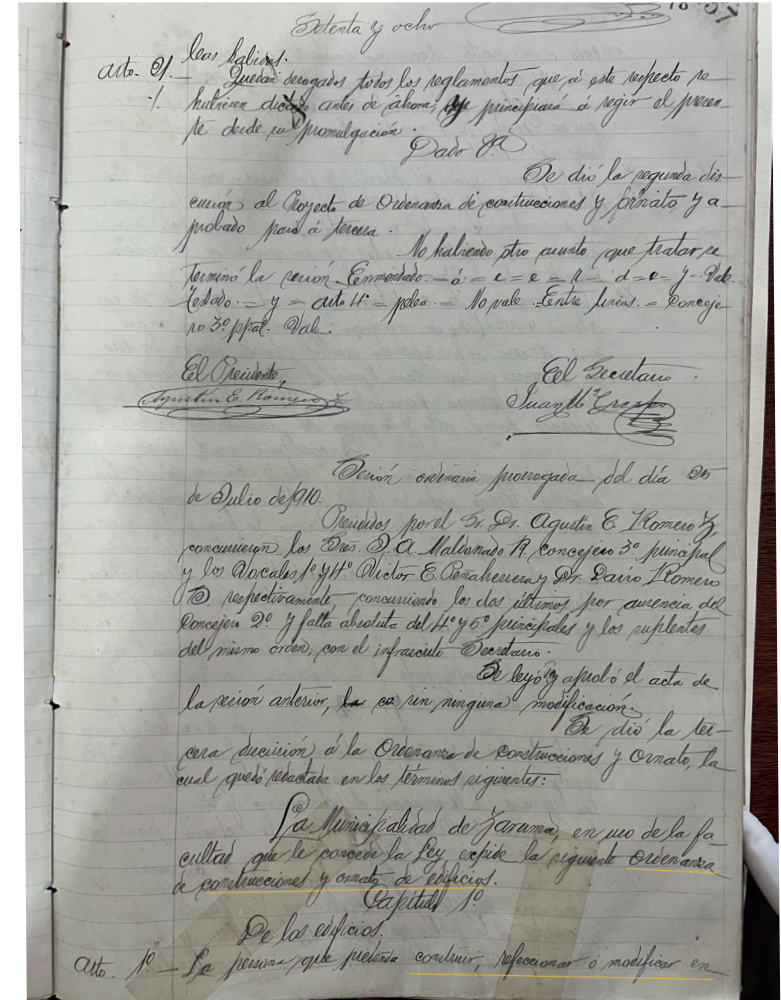 Setenta y ocho
leas habidas.
Arto. 21. — Quedan derogados todos los reglamentos que á este respecto se
hubiesen antes de ahora, y principiará á regir el presen-
te desde su promulgación.
Dado &ª
Se dió la segunda dis-
cusión al Proyecto de Ordenanza de construcciones y ornato y a-
probado pasó á tercera.
No habiendo otro asunto que tratar se
terminó la sesión. Enmendado — á = e = e = r = d = e = y — Vale.
Testado. — y = arto 4º = — No vale. Entre lineas. = Conceje-
ro 3º ppal. Vale.
El Presidente, El Secretario.
Agustín E. Romero Juan Mª Crespo
Sesión ordinaria prorrogada del día 25
de Julio de 1910.
Presididos por el Sr. Dr. Agustín E. Romero Z,
concurrieron los Sres. J. A. Maldonado R. concejero 3º principal
y los Vocales 1º y 4º Victor E. Peñaherrera y Dr. Darío Romero
respectivamente, concurriendo los dos últimos por ausencia del
Concejero 2º y falta absoluta del 4º y 5º principales y los suplentes
del mismo orden, con el infrascrito Secretario.
Se leyó y aprobó el acta de
la sesión anterior, sin ninguna modificación.
Se dió la ter-
cera discusión á la Ordenanza de construcciones y Ornato, la
cual quedó redactada en los términos siguientes:
La Municipalidad de Zaruma, en uso de la fa-
cultad que le concede la Ley, expide la siguiente Ordenanza
de construcciones y ornato de edificios.
Capítulo 1º
De los edificios.
Arto. 1º — La persona que pretenda construir, refeccionar ó modificar en